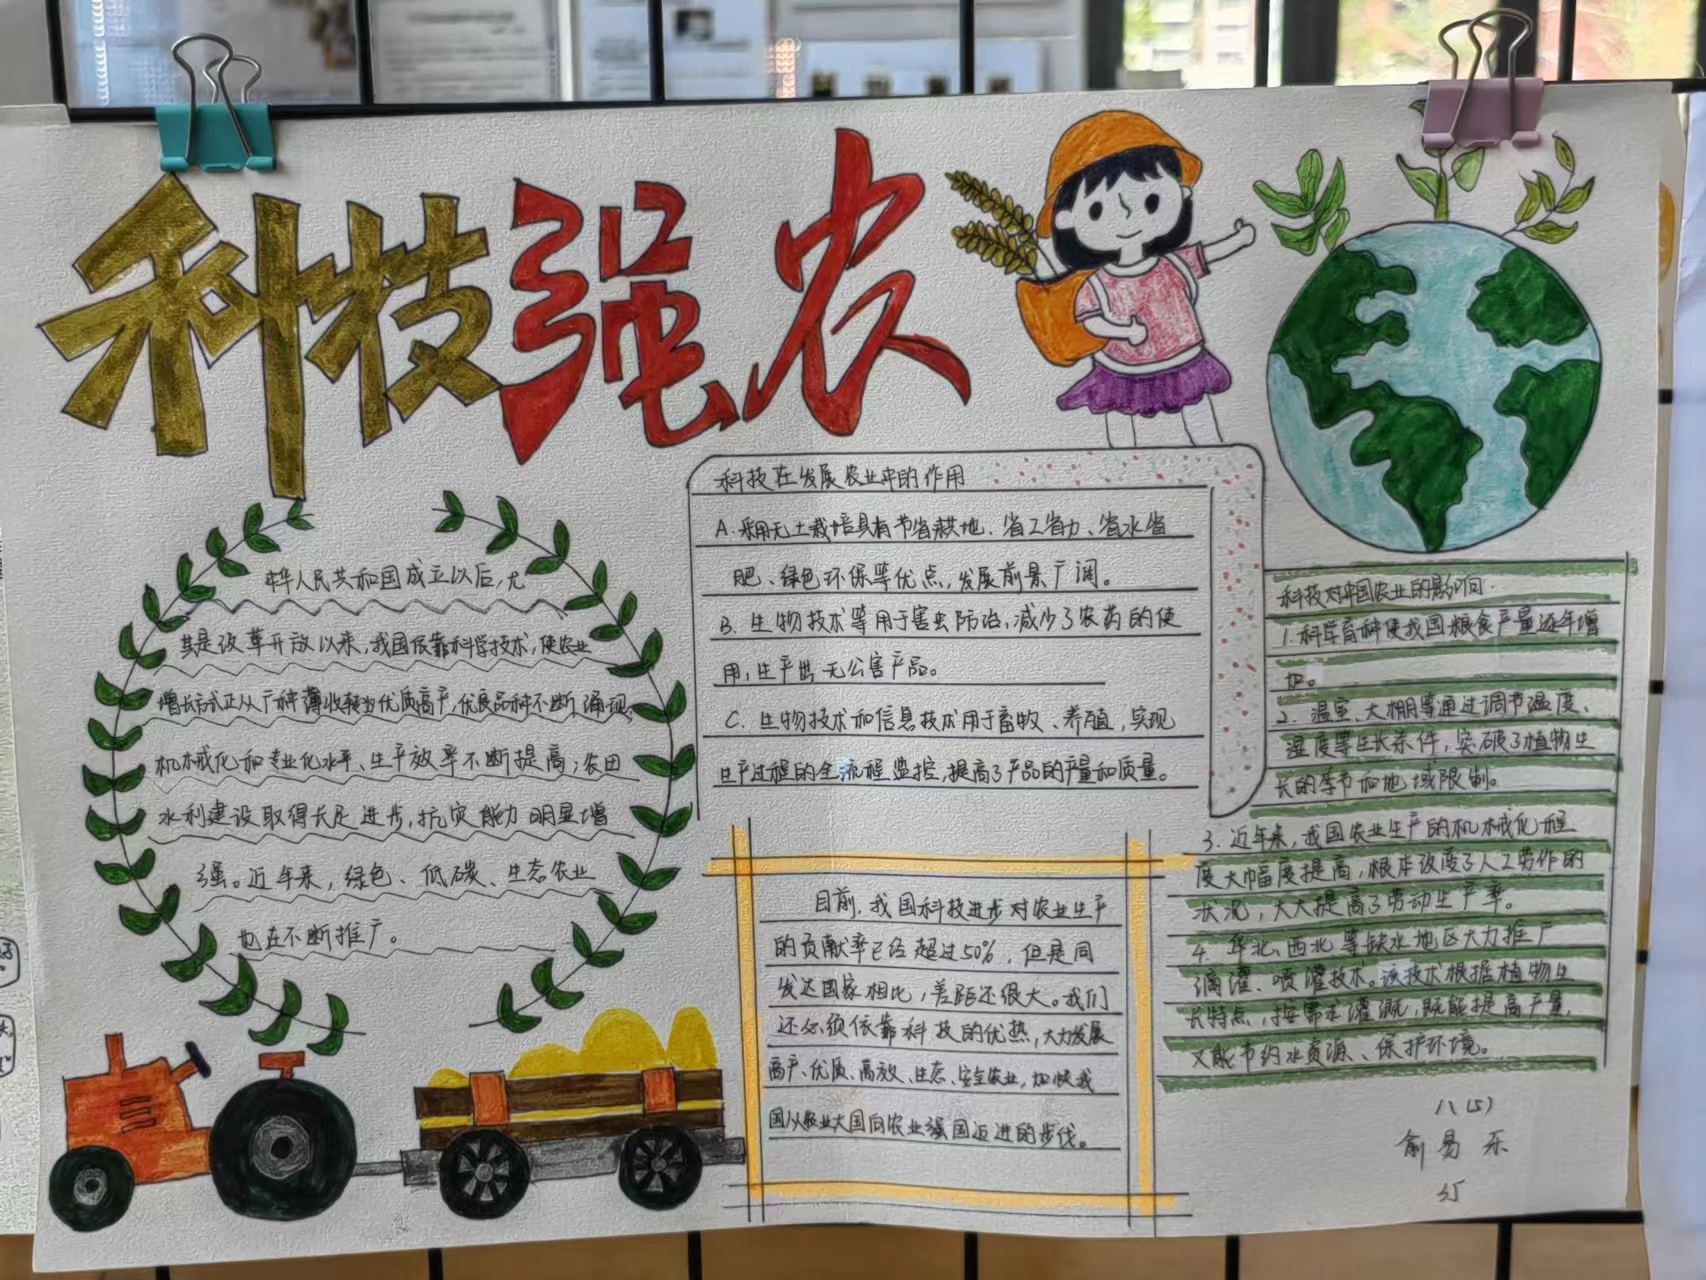 科技强农
中华人民共和国成立以后,尤
其是改革开放以来,我国依靠科学技术,使农业
增长方式正从广种薄收转为优质高产,优良品种不断涌现,
机械化和专业化水平、生产效率不断提高;农田
水利建设取得长足进步,抗灾能力明显增
强。近年来,绿色、低碳、生态农业
也在不断推广。
科技在发展农业中的作用
A.利用无土栽培具有节省耕地、省工省力、省水省
肥、绿色环保等优点,发展前景广阔。
B.生物技术等用于害虫防治,减少了农药的使
用,生产出无公害产品。
C.生物技术和信息技术用于畜牧、养殖,实现
生产过程的全流程监控,提高了产品的产量和质量。
目前,我国科技进步对农业生产
的贡献率已经超过50%,但是同
发达国家相比,差距还很大。我们
还必须依靠科技的优热,大力发展
高产、优质、高效、生态、安全农业,加快我
国从农业大国向农业强国迈进的步伐。
科技对中国农业的影响
1.科学育种使我国粮食产量逐年增
加。
2.温室、大棚等通过调节温度、
湿度等生长条件,突破了植物生
长的季节和地域限制。
3.近年来,我国农业生产的机械化程
度大幅度提高,根本改变了人工劳作的
状况,大大提高了劳动生产率。
4.华北、西北等缺水地区大力推广
滴灌、喷灌技术。该技术根据植物生
长特点,按需求灌溉,既能提高产量,
又能节约水资源、保护环境。
八(5)
俞易乐